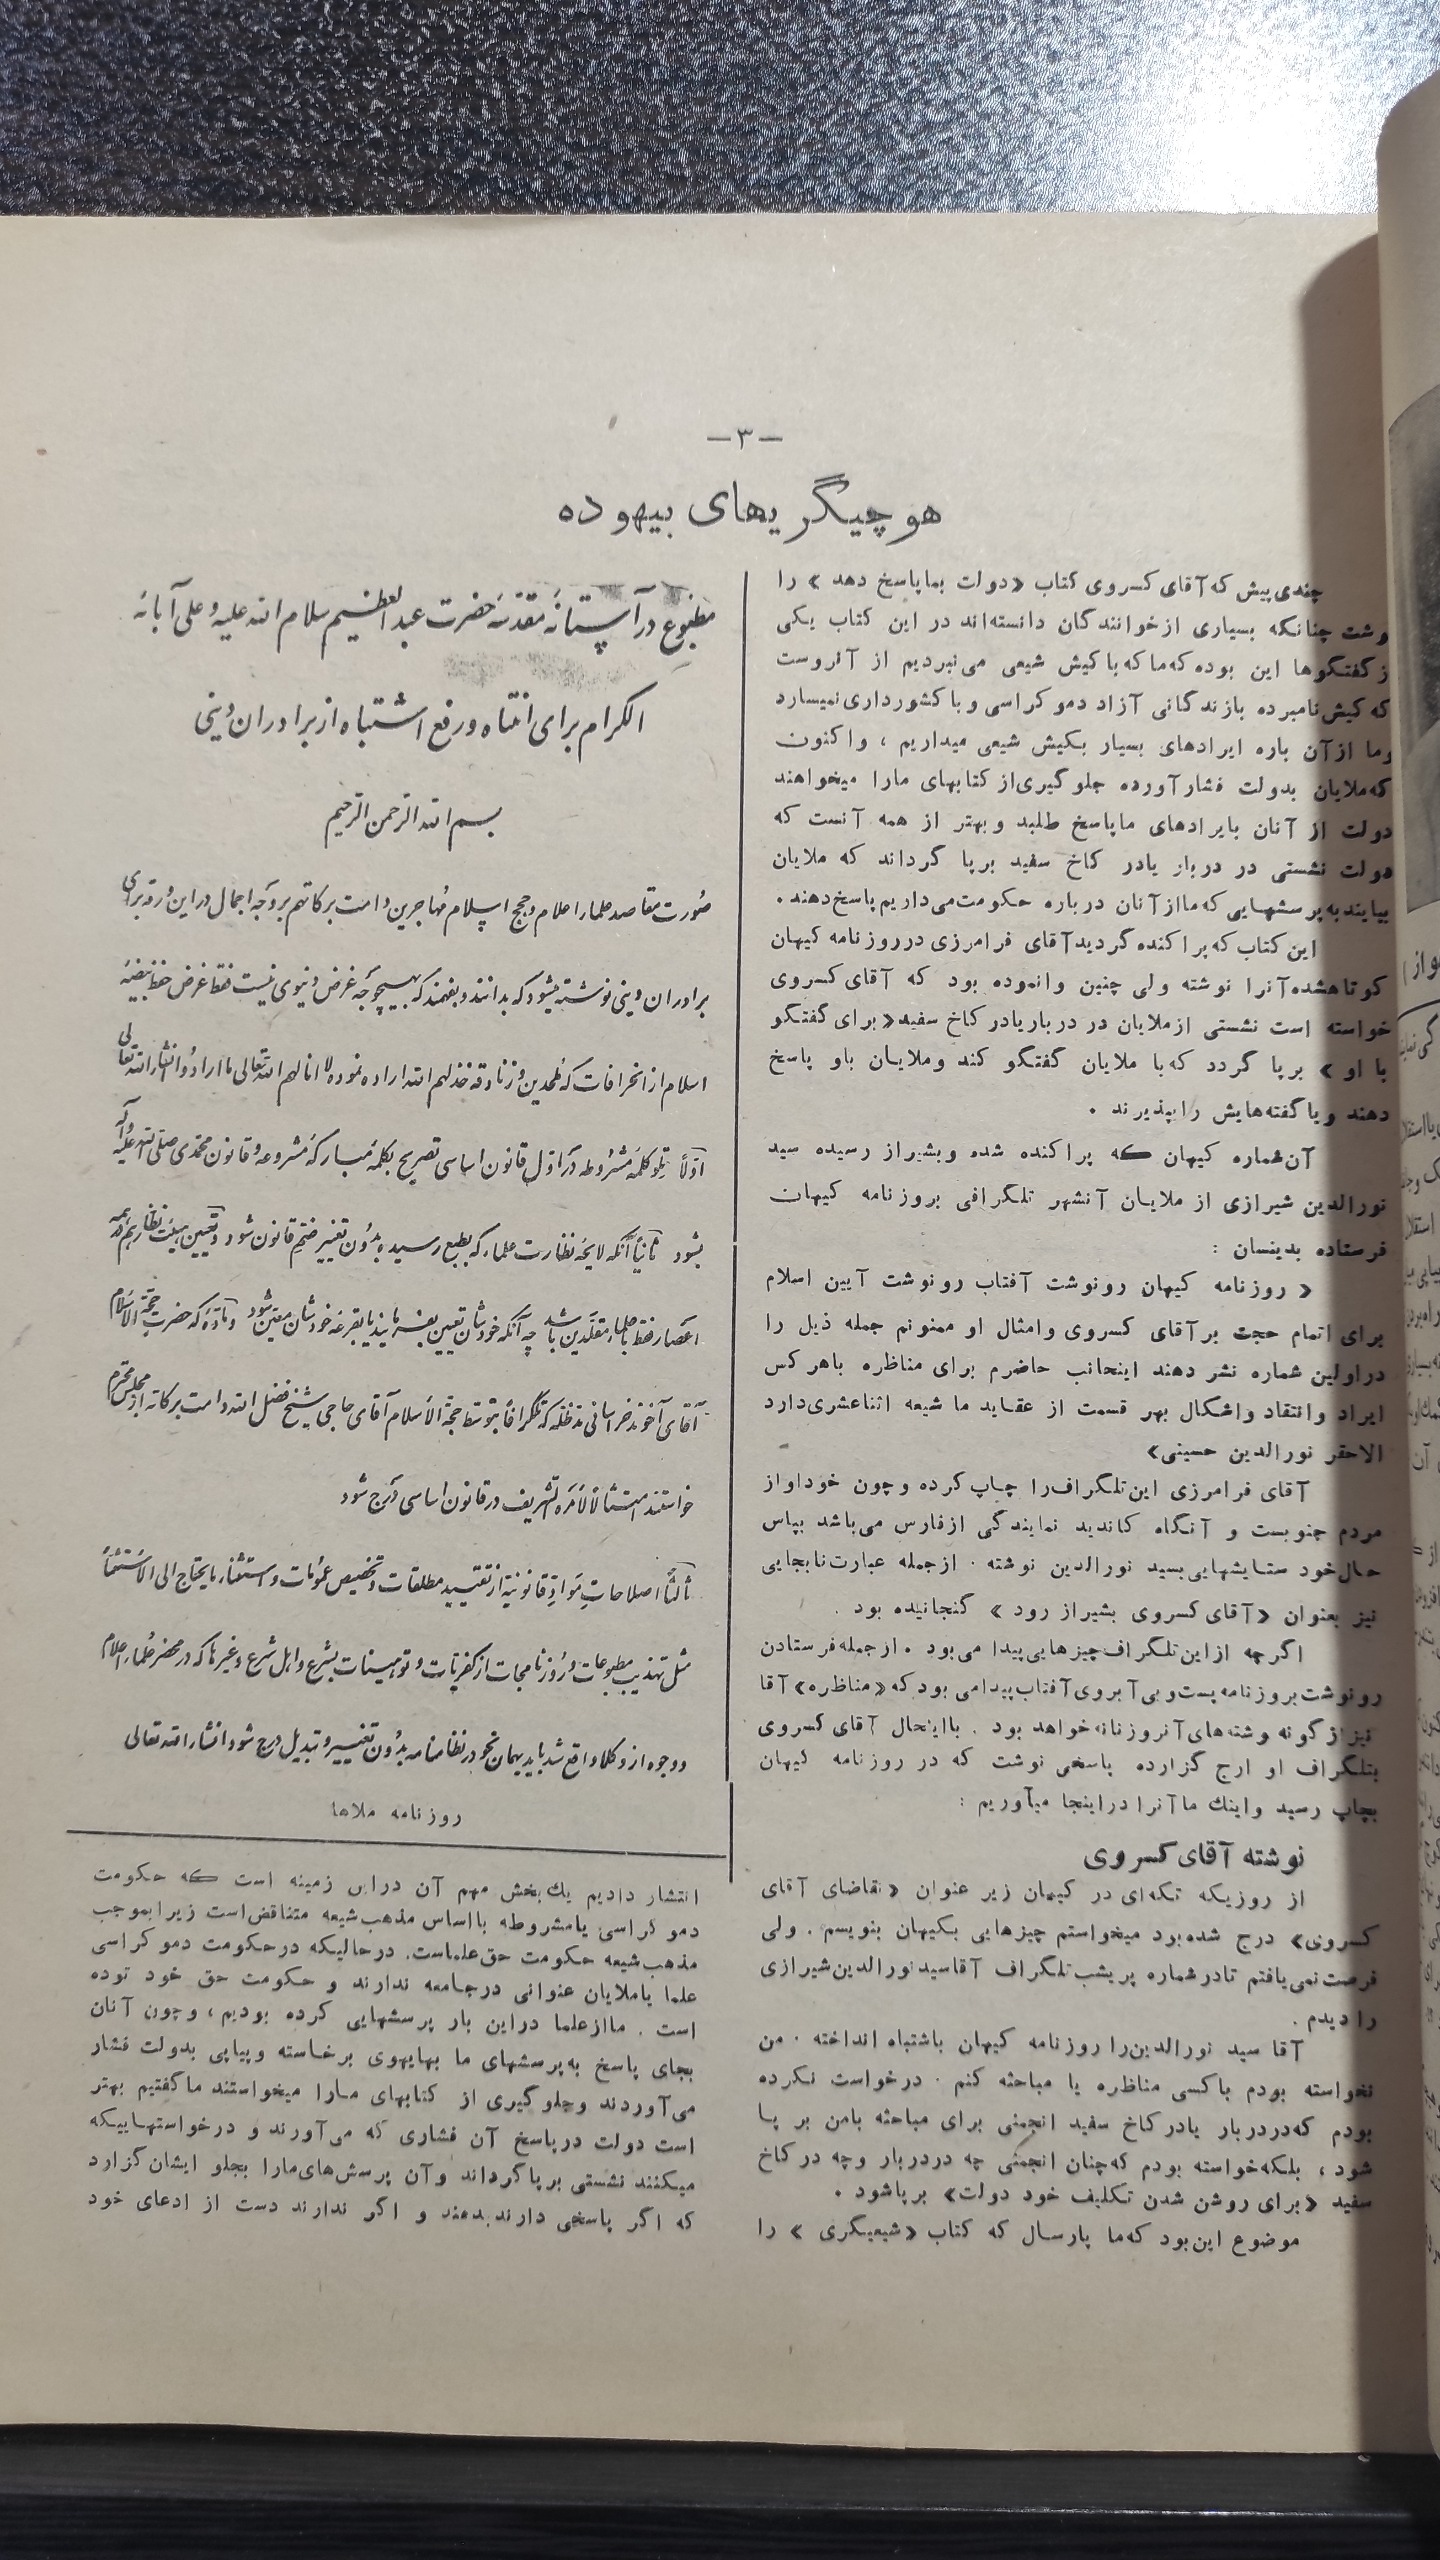 —۳—
هوچیگریهای بیهوده
چندی پیش که آقای کسروی کتاب «دولت بما پاسخ دهد» را
وشت چنانکه بسیاری از خوانندگان دانسته‌اند در این کتاب یکی
ز گفتگوها این بوده که ما که با کیش شیعی می‌نبردیم از آنروست
که کیش نامبرده با زندگانی آزاد دموکراسی و با کشورداری نمیسازد
وما از آن باره ایرادهای بسیار بکیش شیعی میداریم ، واکنون
که ملایان بدولت فشار آورده جلوگیری از کتابهای مارا میخواهند
دولت از آنان بایرادهای ما پاسخ طلبد و بهتر از همه آنست که
دولت نشستی در دربار یا در کاخ سفید برپا گرداند که ملایان
بیایند به پرسشهایی که ما از آنان در باره حکومت می‌داریم پاسخ دهند .
این کتاب که پراکنده گردید آقای فرامرزی در روزنامه کیهان
کوتاهشده آنرا نوشته ولی چنین وانموده بود که آقای کسروی
خواسته است نشستی از ملایان در دربار یا در کاخ سفید «برای گفتگو
با او» برپا گردد که با ملایان گفتگو کند و ملایان باو پاسخ
دهند و یا گفته‌هایش را بپذیرند .
آن شماره کیهان که پراکنده شده و بشیراز رسیده سید
نورالدین شیرازی از ملایان آنشهر تلگرافی بروزنامه کیهان
فرستاده بدینسان :
« روزنامه کیهان رونوشت آفتاب رونوشت آیین اسلام
برای اتمام حجت بر آقای کسروی و امثال او ممنونم جمله ذیل را
در اولین شماره نشر دهند اینجانب حاضرم برای مناظره با هر کس
ایراد و انتقاد و اشکال بهر قسمت از عقاید ما شیعه اثناعشری دارد
الاحقر نورالدین حسینی»
آقای فرامرزی این تلگراف را چاپ کرده و چون خود او از
مردم جنوبست و آنگاه کاندید نمایندگی از فارس می‌باشد بپاس
حال خود ستایشهایی بسید نورالدین نوشته . از جمله عبارت نابجایی
نیز بعنوان «آقای کسروی بشیراز رود» گنجانیده بود .
اگرچه از این تلگراف چیزهایی پیدا می‌بود . از جمله فرستادن
رونوشت بروزنامه پست و بی‌آبروی آفتاب پیدا می‌بود که «مناظره» آقا
نیز از گونه وشته‌های آنروزنامه خواهد بود . با اینحال آقای کسروی
بتلگراف او ارج گزارده پاسخی نوشت که در روزنامه کیهان
بچاپ رسید و اینک ما آنرا در اینجا میآوریم :
نوشته آقای کسروی
از روزیکه تکه‌ای در کیهان زیر عنوان «تقاضای آقای
کسروی» درج شده بود میخواستم چیزهایی بکیهان بنویسم . ولی
فرصت نمی‌یافتم تا در شماره پریشب تلگراف آقا سید نورالدین شیرازی
را دیدم .
آقا سید نورالدین را روزنامه کیهان باشتباه انداخته . من
نخواسته بودم با کسی مناظره یا مباحثه کنم . درخواست نکرده
بودم که در دربار یا در کاخ سفید انجمنی برای مباحثه با من بر پا
شود ، بلکه خواسته بودم که چنان انجمنی چه در دربار و چه در کاخ
سفید «برای روشن شدن تکلیف خود دولت» برپا شود .
موضوع این بود که ما پارسال که کتاب «شیعیگری» را
مطبوع در آستانه مقدسه حضرت عبدالعظیم سلام الله علیه و علی آبائه
الکرام برای انتباه و رفع اشتباه از برادران دینی
بسم الله الرحمن الرحیم
صورت مقاصد علماء اعلام و حجج اسلام مهاجرین دامت برکاتهم بر وجه اجمال در این ورقه برای
برادران دینی نوشته میشود که بدانند و بفهمند که بهیچوجه غرض دنیوی نیست فقط غرض حفظ بیضه
اسلام از انحرافات که ملحدین و زنادقه خذلهم الله اراده نموده لا انالهم الله تعالی ما ارادوا انشاء الله تعالی
اولا تلو کلمه مشروطه در اول قانون اساسی تصریح بکلمه مبارکه مشروعه و قانون محمدی صلی الله علیه و آله
بشود ثانیا آنکه لایحه نظارت علماء که بطبع رسیده بدون تغییر ضمّ قانون شود و تعیین هیئت نظار هم در همه
اعصار فقط با علماء مقلدین باشد چه آنکه خودشان تعیین بفرمایند یا بقرعه خودشان معین شود و ماده که حضرت حجة الاسلام
آقای آخوند خراسانی مدظله که تلگرافاً بتوسط حجة الاسلام آقای حاجی شیخ فضل الله دامت برکاته از مجلس محترم
خواستند امتثالاً لامره الشریف در قانون اساسی درج شود
ثالثاً اصلاحات مواد قانونیه از تقیید مطلقات و تخصیص عمومات و استثناء ما یحتاج الی الاستثناء
مثل تهذیب مطبوعات و روزنامجات از کفریات و توهینات بشرع و اهل شرع و غیرها که در محضر علماء اعلام
و وجوه از وکلا واقع شد باید بهمان نحو در نظامنامه بدون تغییر و تبدیل درج شود انشاء الله تعالی
روزنامه ملاها
انتشار دادیم یک بخش مهم آن در این زمینه است که حکومت
دموکراسی یا مشروطه با اساس مذهب شیعه متناقض است زیرا بموجب
مذهب شیعه حکومت حق علماست. در حالیکه در حکومت دموکراسی
علما یا ملایان عنوانی در جامعه ندارند و حکومت حق خود توده
است . ما از علما در این بار پرسشهایی کرده بودیم ، و چون آنان
بجای پاسخ به پرسشهای ما بهایهوی برخاسته و پیاپی بدولت فشار
می‌آوردند و جلوگیری از کتابهای مارا میخواستند ما گفتیم بهتر
است دولت در پاسخ آن فشاری که می‌آورند و درخواستهاییکه
میکنند نشستی برپا گرداند و آن پرسش‌های مارا بجلو ایشان گزارد
که اگر پاسخی دارند بدهند و اگر ندارند دست از ادعای خود